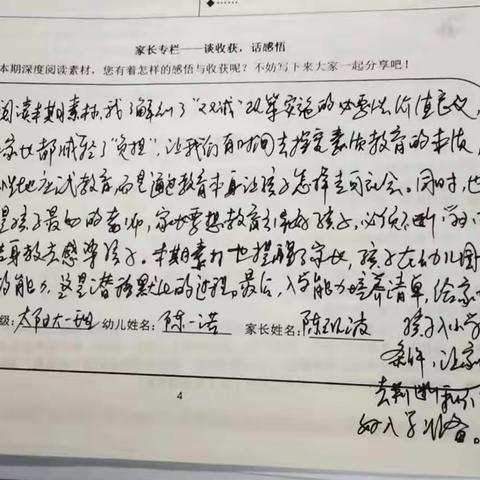 家长专栏——谈收获，话感悟
本期深度阅读素材，您有着怎样的感悟与收获呢？不妨写下来大家一起分享吧！
阅读本期素材，我了解到了"双减"政策实施的必要性、价值意义，
家长都减轻了"负担"，让我们有时间去探究素质教育的本质，
地应试教育而是通过教育本身让孩子怎样走向社会。同时，也
是孩子最好的老师，家长要想教育引导好孩子，必须不断学习
身教去感染孩子。本期素材也提醒了家长，孩子在幼儿园
的能力，这是潜移默化的过程。最后，入学能力培养清单，给家
级：太阳大一班 幼儿姓名：陈一诺 家长姓名：陈 波 孩子入小学
条件，让家
去判断和
好入学准备。
4